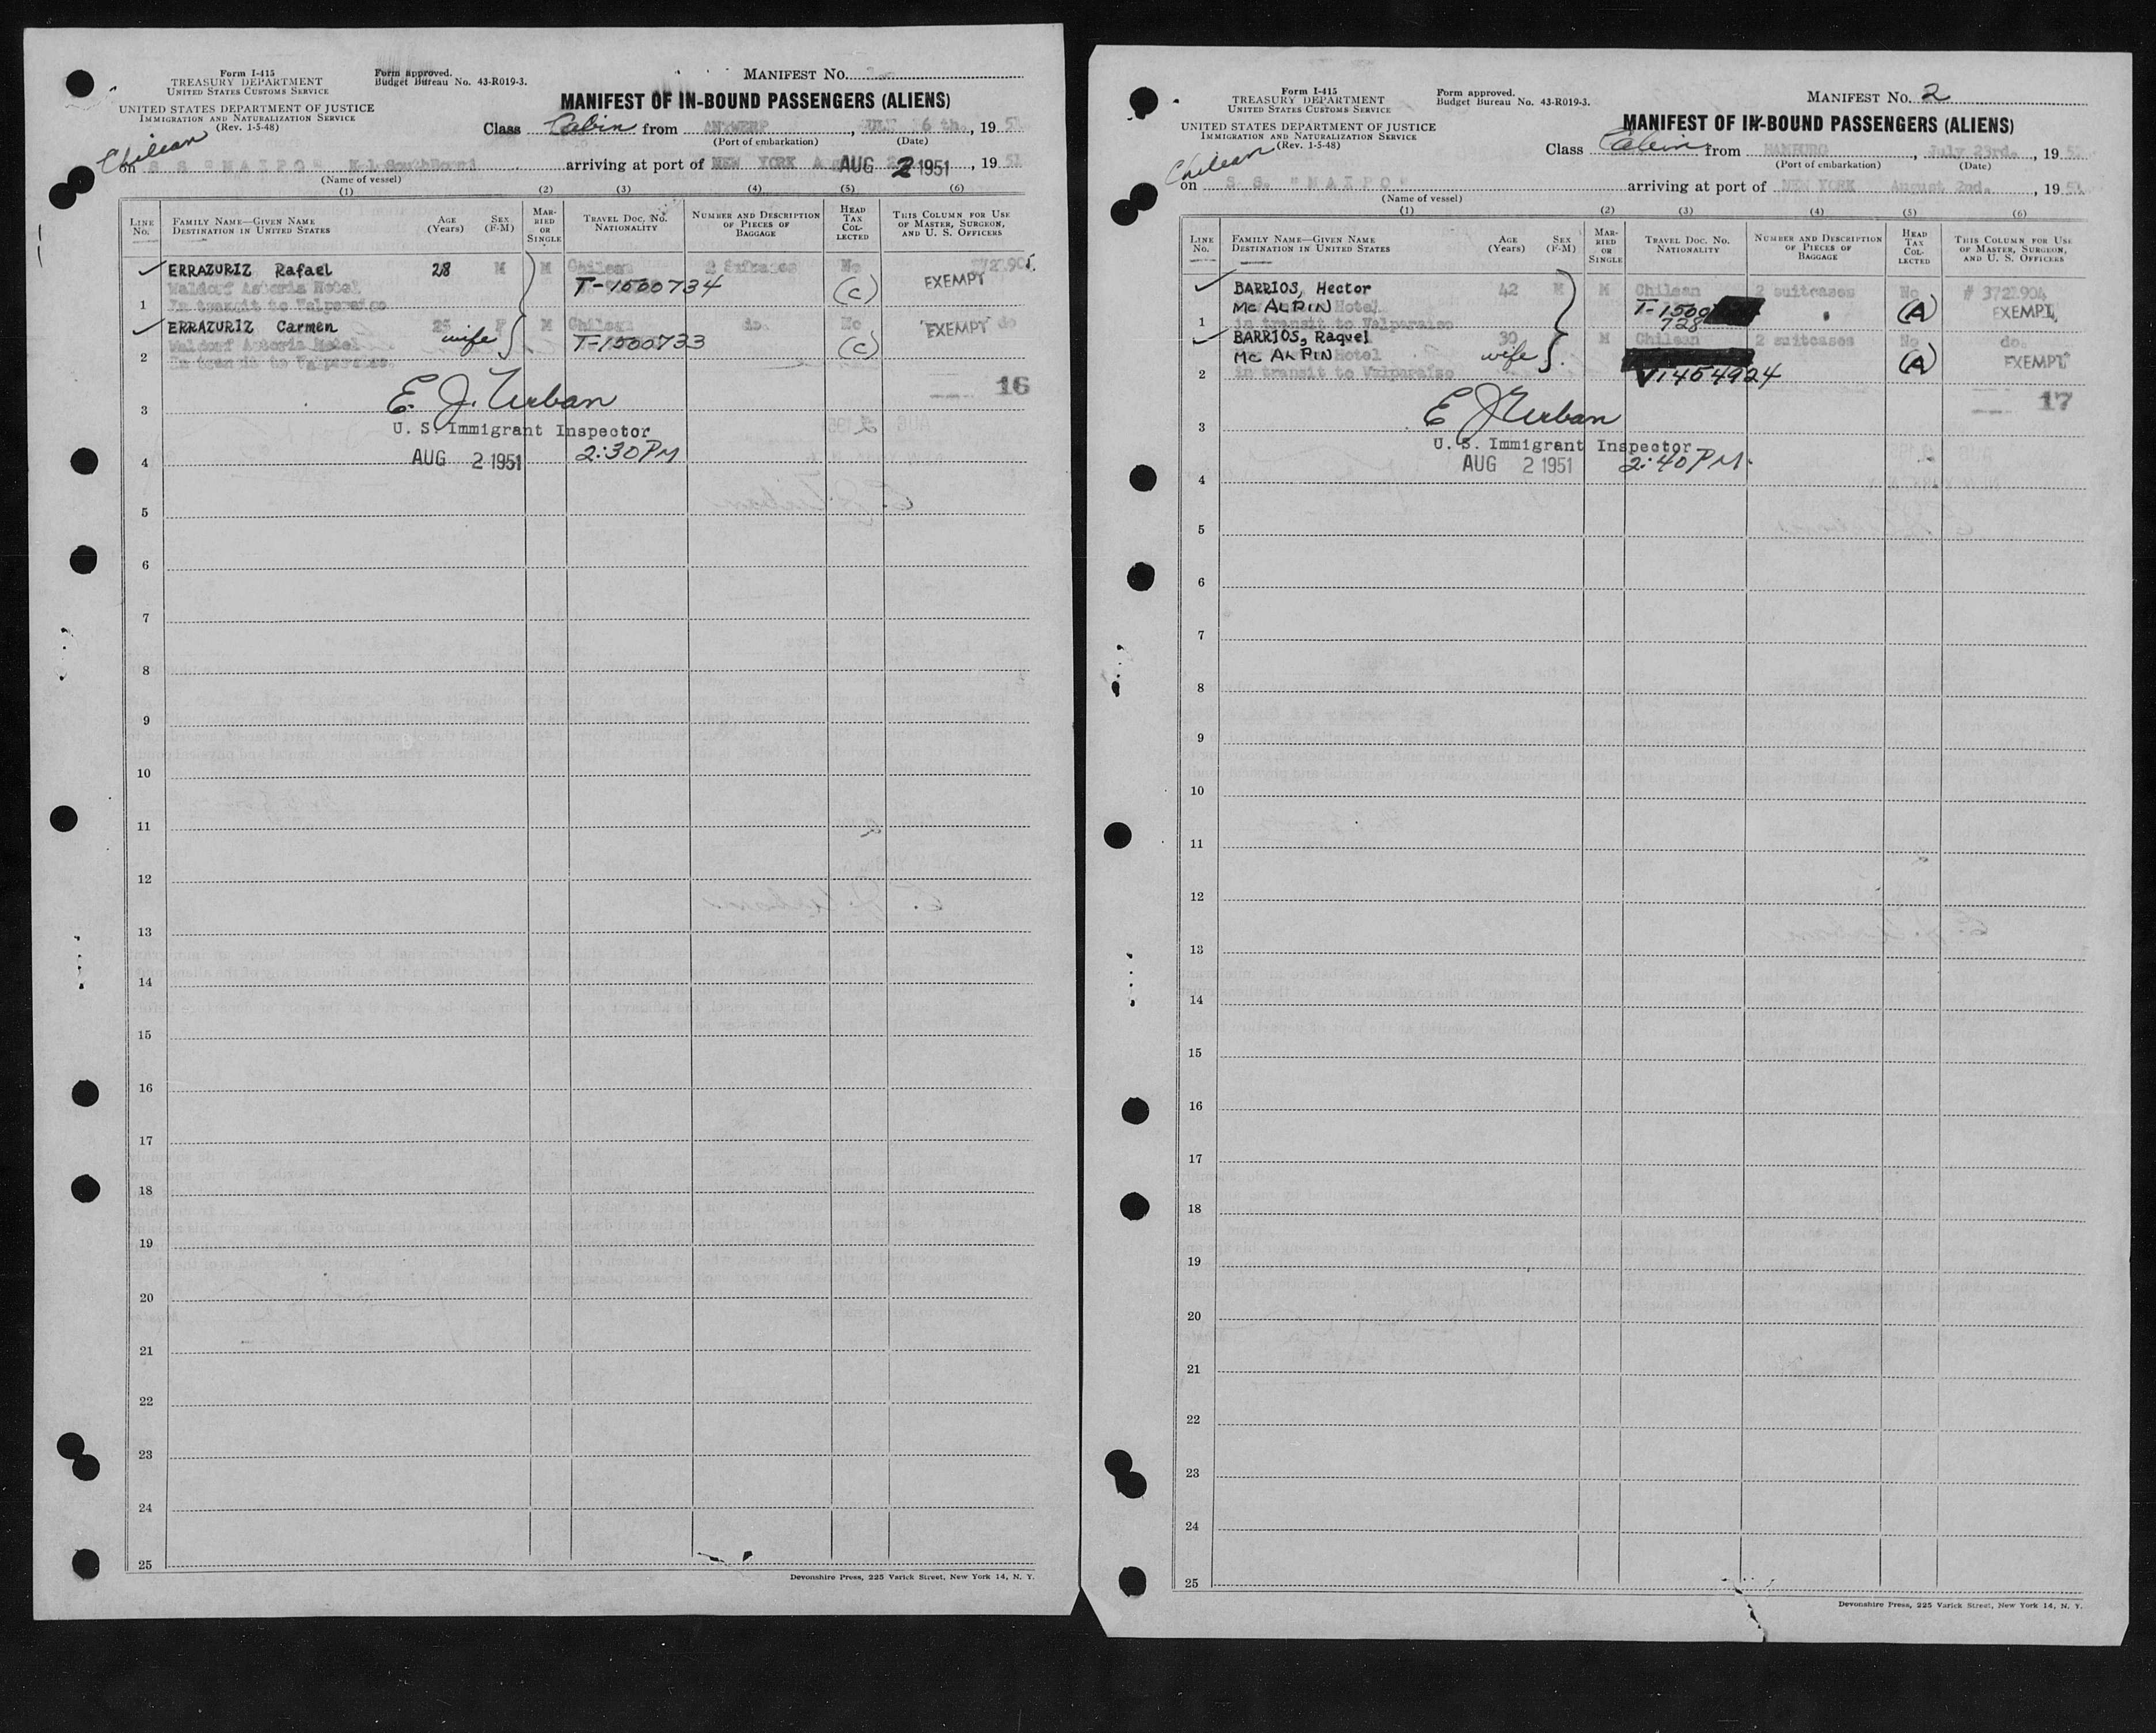 Form I-415
TREASURY DEPARTMENT
UNITED STATES CUSTOMS SERVICE
Form approved.
Budget Bureau No. 43-R019-3.
MANIFEST No.
UNITED STATES DEPARTMENT OF JUSTICE
IMMIGRATION AND NATURALIZATION SERVICE
(Rev. 1-5-48)
MANIFEST OF IN-BOUND PASSENGERS (ALIENS)
Class Cabin from ANTWERP, JULY 16 th., 1951
(Port of embarkation) (Date)
Chilean
on S S "MAIPO" N 1 SouthBound arriving at port of NEW YORK AUG 2 1951, 1951
(Name of vessel)
(1) (2) (3) (4) (5) (6)
LINE No. FAMILY NAME—GIVEN NAME DESTINATION IN UNITED STATES AGE (Years) SEX (F-M) MARRIED OR SINGLE TRAVEL DOC. NO. NATIONALITY NUMBER AND DESCRIPTION OF PIECES OF BAGGAGE HEAD TAX COLLECTED THIS COLUMN FOR USE OF MASTER, SURGEON, AND U. S. OFFICERS
ERRAZURIZ Rafael 28 M M Chilean 2 Suitcases No
Waldorf Astoria Hotel T-1500734 (C) EXEMPT
1 In transit to Valparaiso
ERRAZURIZ Carmen 25 F M Chilean do. No EXEMPT do
Waldorf Astoria Hotel wife T-1500733 (C)
2 In transit to Valparaiso
16
E. J. Urban
3
U. S. Immigrant Inspector
4 AUG 2 1951 2:30 PM
5
6
7
8
9
10
11
12
13
14
15
16
17
18
19
20
21
22
23
24
25
Devonshire Press, 225 Varick Street, New York 14, N. Y.
Form I-415
TREASURY DEPARTMENT
UNITED STATES CUSTOMS SERVICE
Form approved.
Budget Bureau No. 43-R019-3.
MANIFEST No. 2
UNITED STATES DEPARTMENT OF JUSTICE
IMMIGRATION AND NATURALIZATION SERVICE
(Rev. 1-5-48)
MANIFEST OF IN-BOUND PASSENGERS (ALIENS)
Class Cabin from HAMBURG, July 23rd., 1951
(Port of embarkation) (Date)
Chilean
on S. S. "MAIPO" arriving at port of NEW YORK August 2nd., 1951
(Name of vessel)
(1) (2) (3) (4) (5) (6)
LINE No. FAMILY NAME—GIVEN NAME DESTINATION IN UNITED STATES AGE (Years) SEX (F-M) MARRIED OR SINGLE TRAVEL DOC. NO. NATIONALITY NUMBER AND DESCRIPTION OF PIECES OF BAGGAGE HEAD TAX COLLECTED THIS COLUMN FOR USE OF MASTER, SURGEON, AND U. S. OFFICERS
BARRIOS, Hector 42 M M Chilean 2 suitcases No # 3721904
Mc ALPIN Hotel T-1500 (A) EXEMPT
1 in transit to Valparaiso 728
BARRIOS, Raquel 30 M Chilean 2 suitcases No do.
Mc ALPIN Hotel wife (A) EXEMPT
2 in transit to Valparaiso V1454924
17
E J Urban
3
U. S. Immigrant Inspector
AUG 2 1951 2:40 PM.
4
5
6
7
8
9
10
11
12
13
14
15
16
17
18
19
20
21
22
23
24
25
Devonshire Press, 225 Varick Street, New York 14, N. Y.